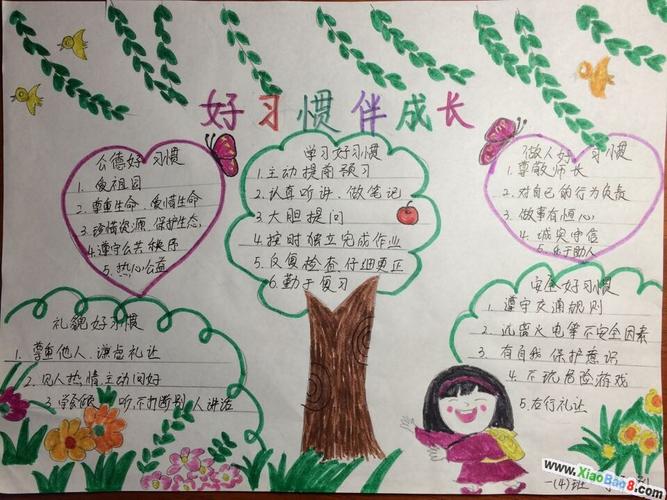 好习惯伴成长
公德好习惯
1. 爱祖国
2. 尊重生命、爱惜生命
3. 珍惜资源、保护生态
4. 遵守公共秩序
5. 热心公益
学习好习惯
1. 主动提前预习
2. 认真听讲、做笔记
3. 大胆提问
4. 按时独立完成作业
5. 反复检查、仔细更正
6. 勤于复习
做人好习惯
1. 尊敬师长
2. 对自己的行为负责
3. 做事有恒心
4. 诚实守信
5. 乐于助人
礼貌好习惯
1. 尊重他人、谦虚礼让
2. 见人热情主动问好
3. 学会倾听、不打断别人讲话
安全好习惯
1. 遵守交通规则
2. 远离火电等不安全因素
3. 有自我保护意识
4. 不玩危险游戏
5. 右行礼让
一(4)班
www.XiaoBao8.com